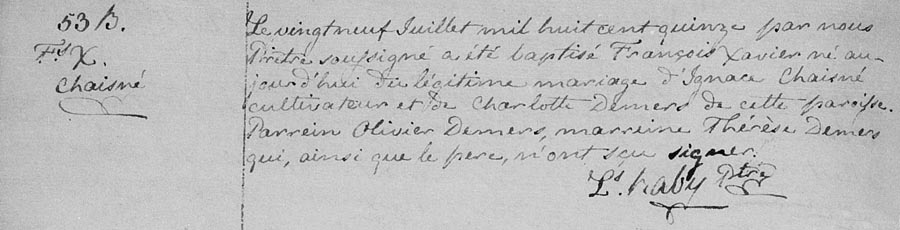 53 B.
Fs X.
Chaisné
Le vingt neuf Juillet mil huit cent quinze par nous
Prêtre soussigné a été baptisé François Xavier né au-
jourd'hui du légitime mariage d'Ignace Chaisné
cultivateur et de Charlotte Demers de cette paroisse.
Parrein Olivier Demers, marreine Thérèse Demers
qui, ainsi que le pere, n'ont sçu signer.
Ls. Raby Ptre